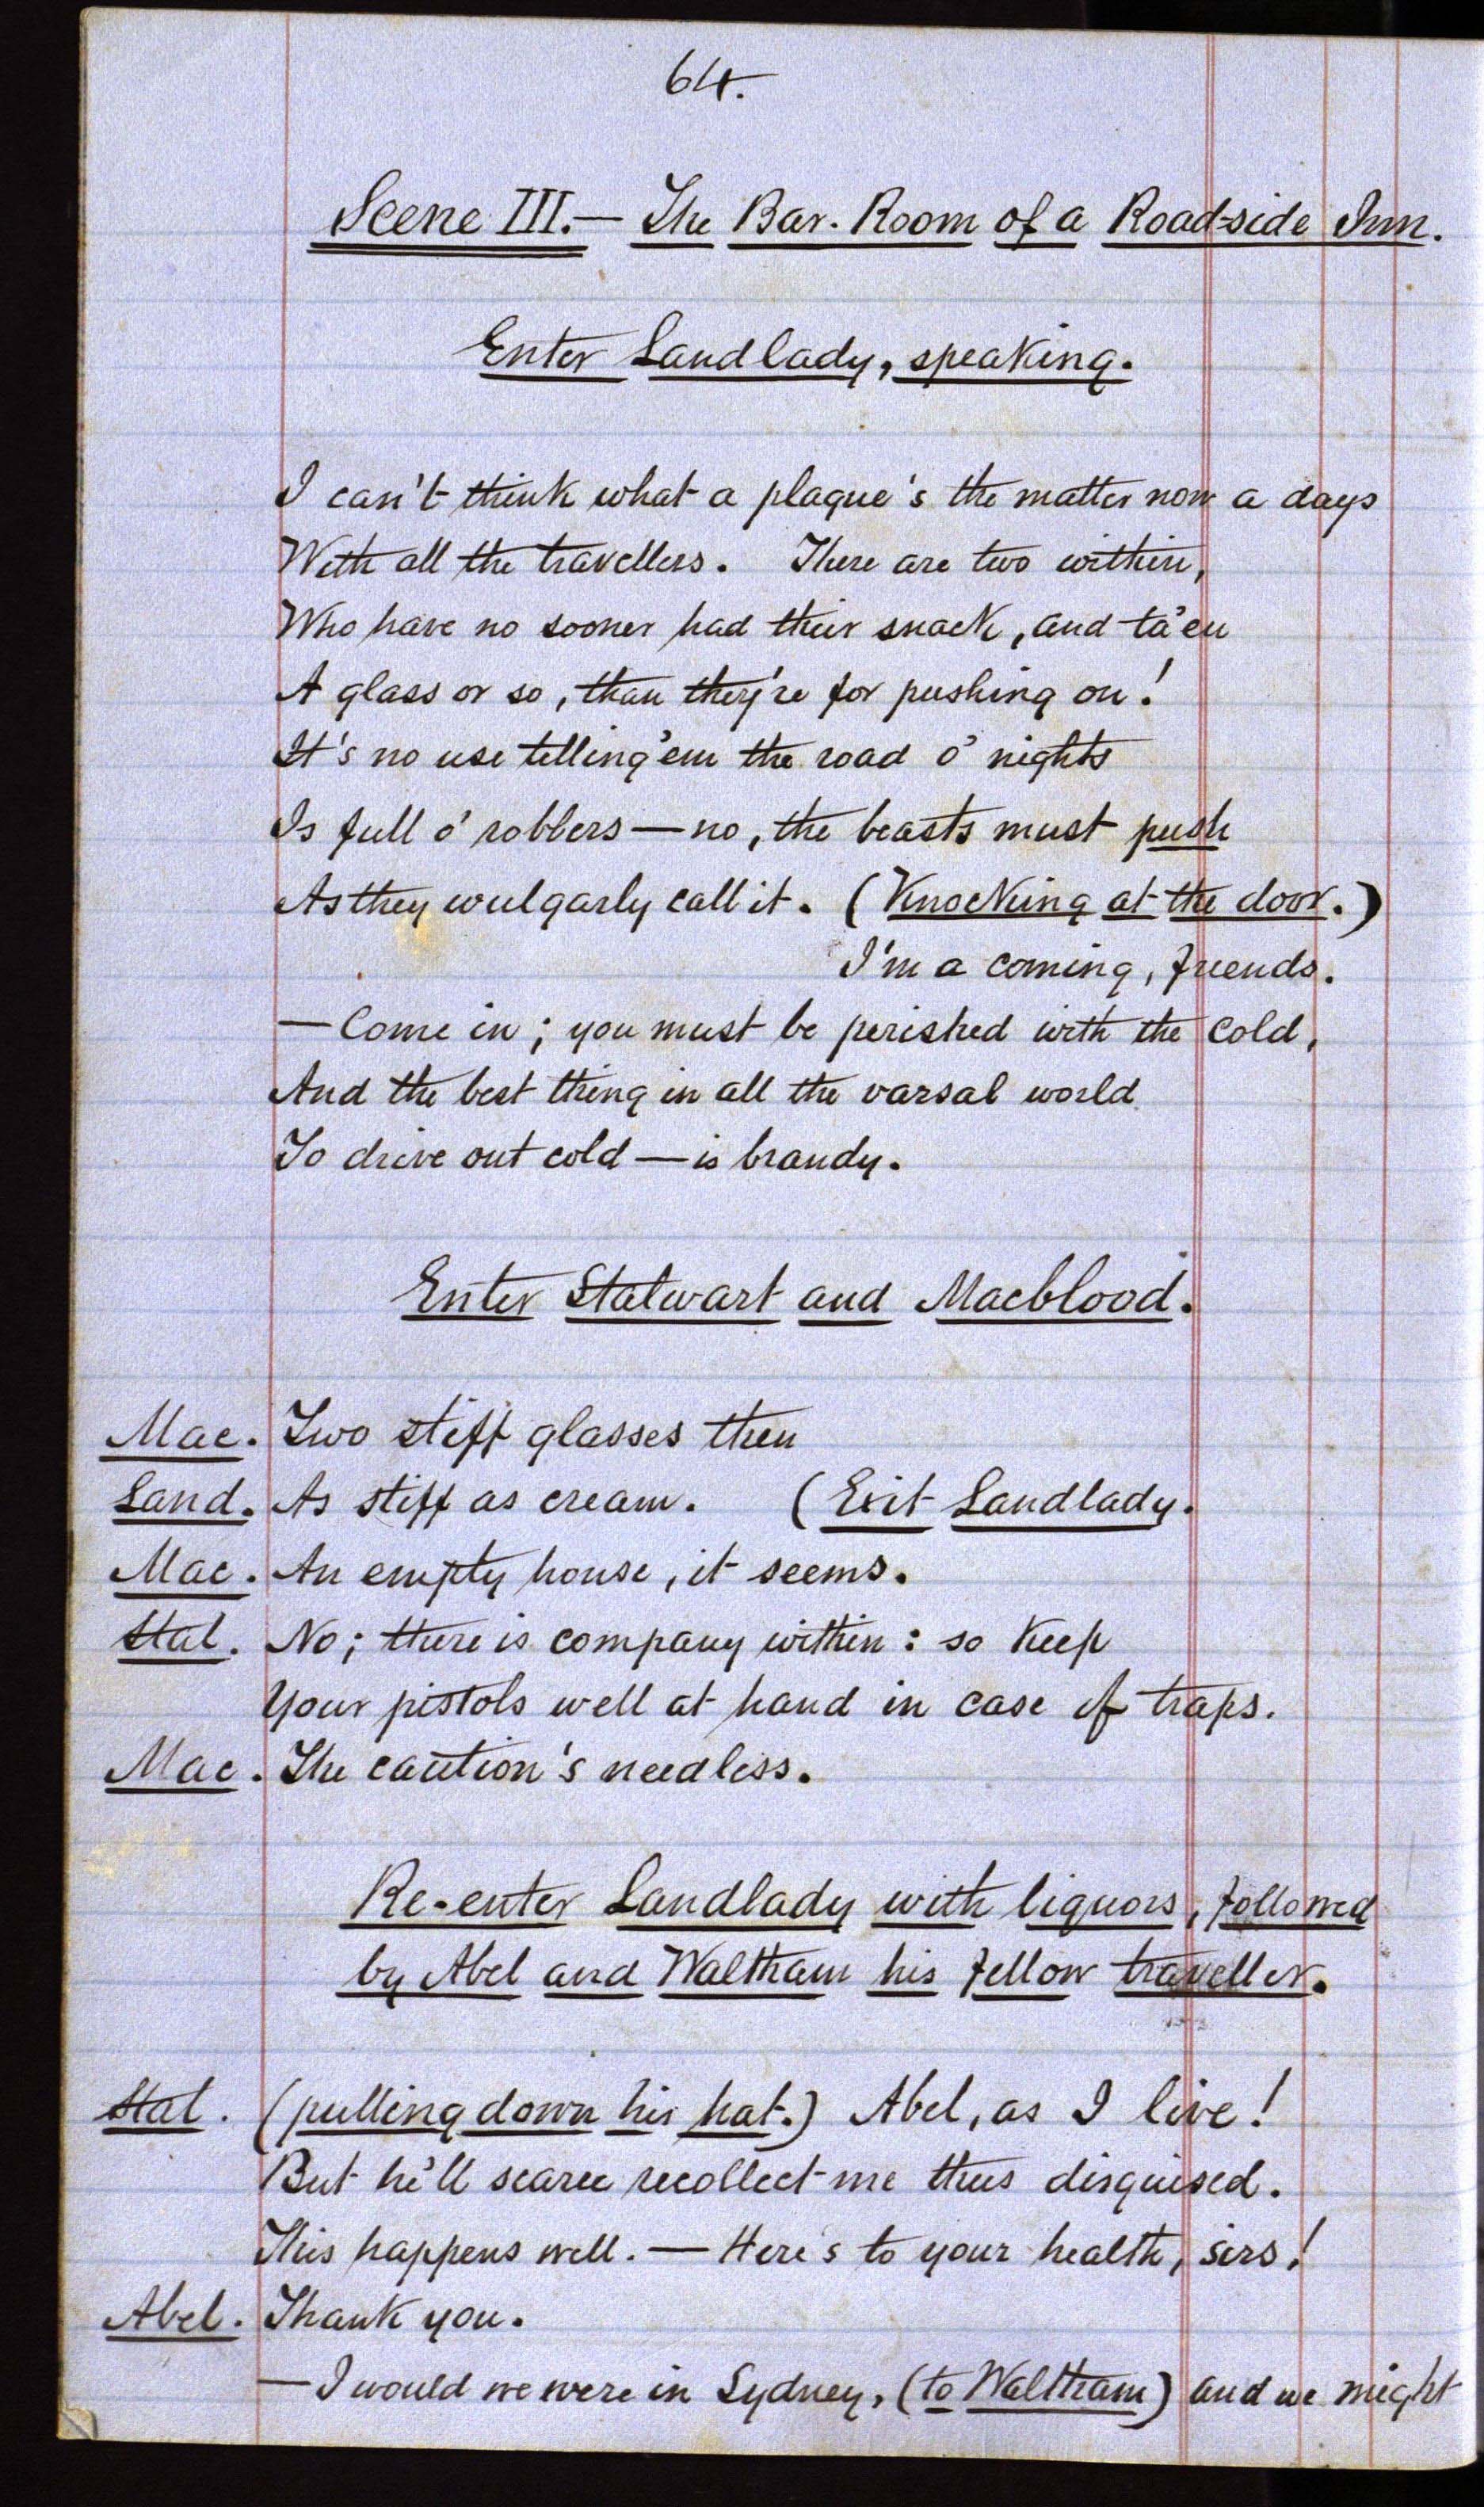 64.
Scene III.— The Bar-Room of a Road-side Inn.
Enter Landlady, speaking.
I can't think what a plague's the matter now a days
With all the travellers. There are two within,
Who have no sooner had their snack, and ta'en
A glass or so, than they're for pushing on!
It's no use telling 'em the road o' nights
Is full o' robbers — no, the beasts must push
As they wulgarly call it. (Knocking at the door.)
I'm a coming, friends.
— Come in; you must be perished with the cold,
And the best thing in all the varsal world
To drive out cold — is brandy.
Enter Stalwart and Macblood.
Mac. Two stiff glasses then
Land. As stiff as cream. (Exit Landlady.
Mac. An empty house, it seems.
Stal. No; there is company within: so keep
Your pistols well at hand in case of traps.
Mac. The caution's needless.
Re-enter Landlady with liquors, followed
by Abel and Waltham his fellow traveller.
Stal. (pulling down his hat.) Abel, as I live!
But he'll scarce recollect me thus disguised.
This happens well. — Here's to your health, sirs!
Abel. Thank you.
— I would we were in Sydney, (to Waltham) and we might